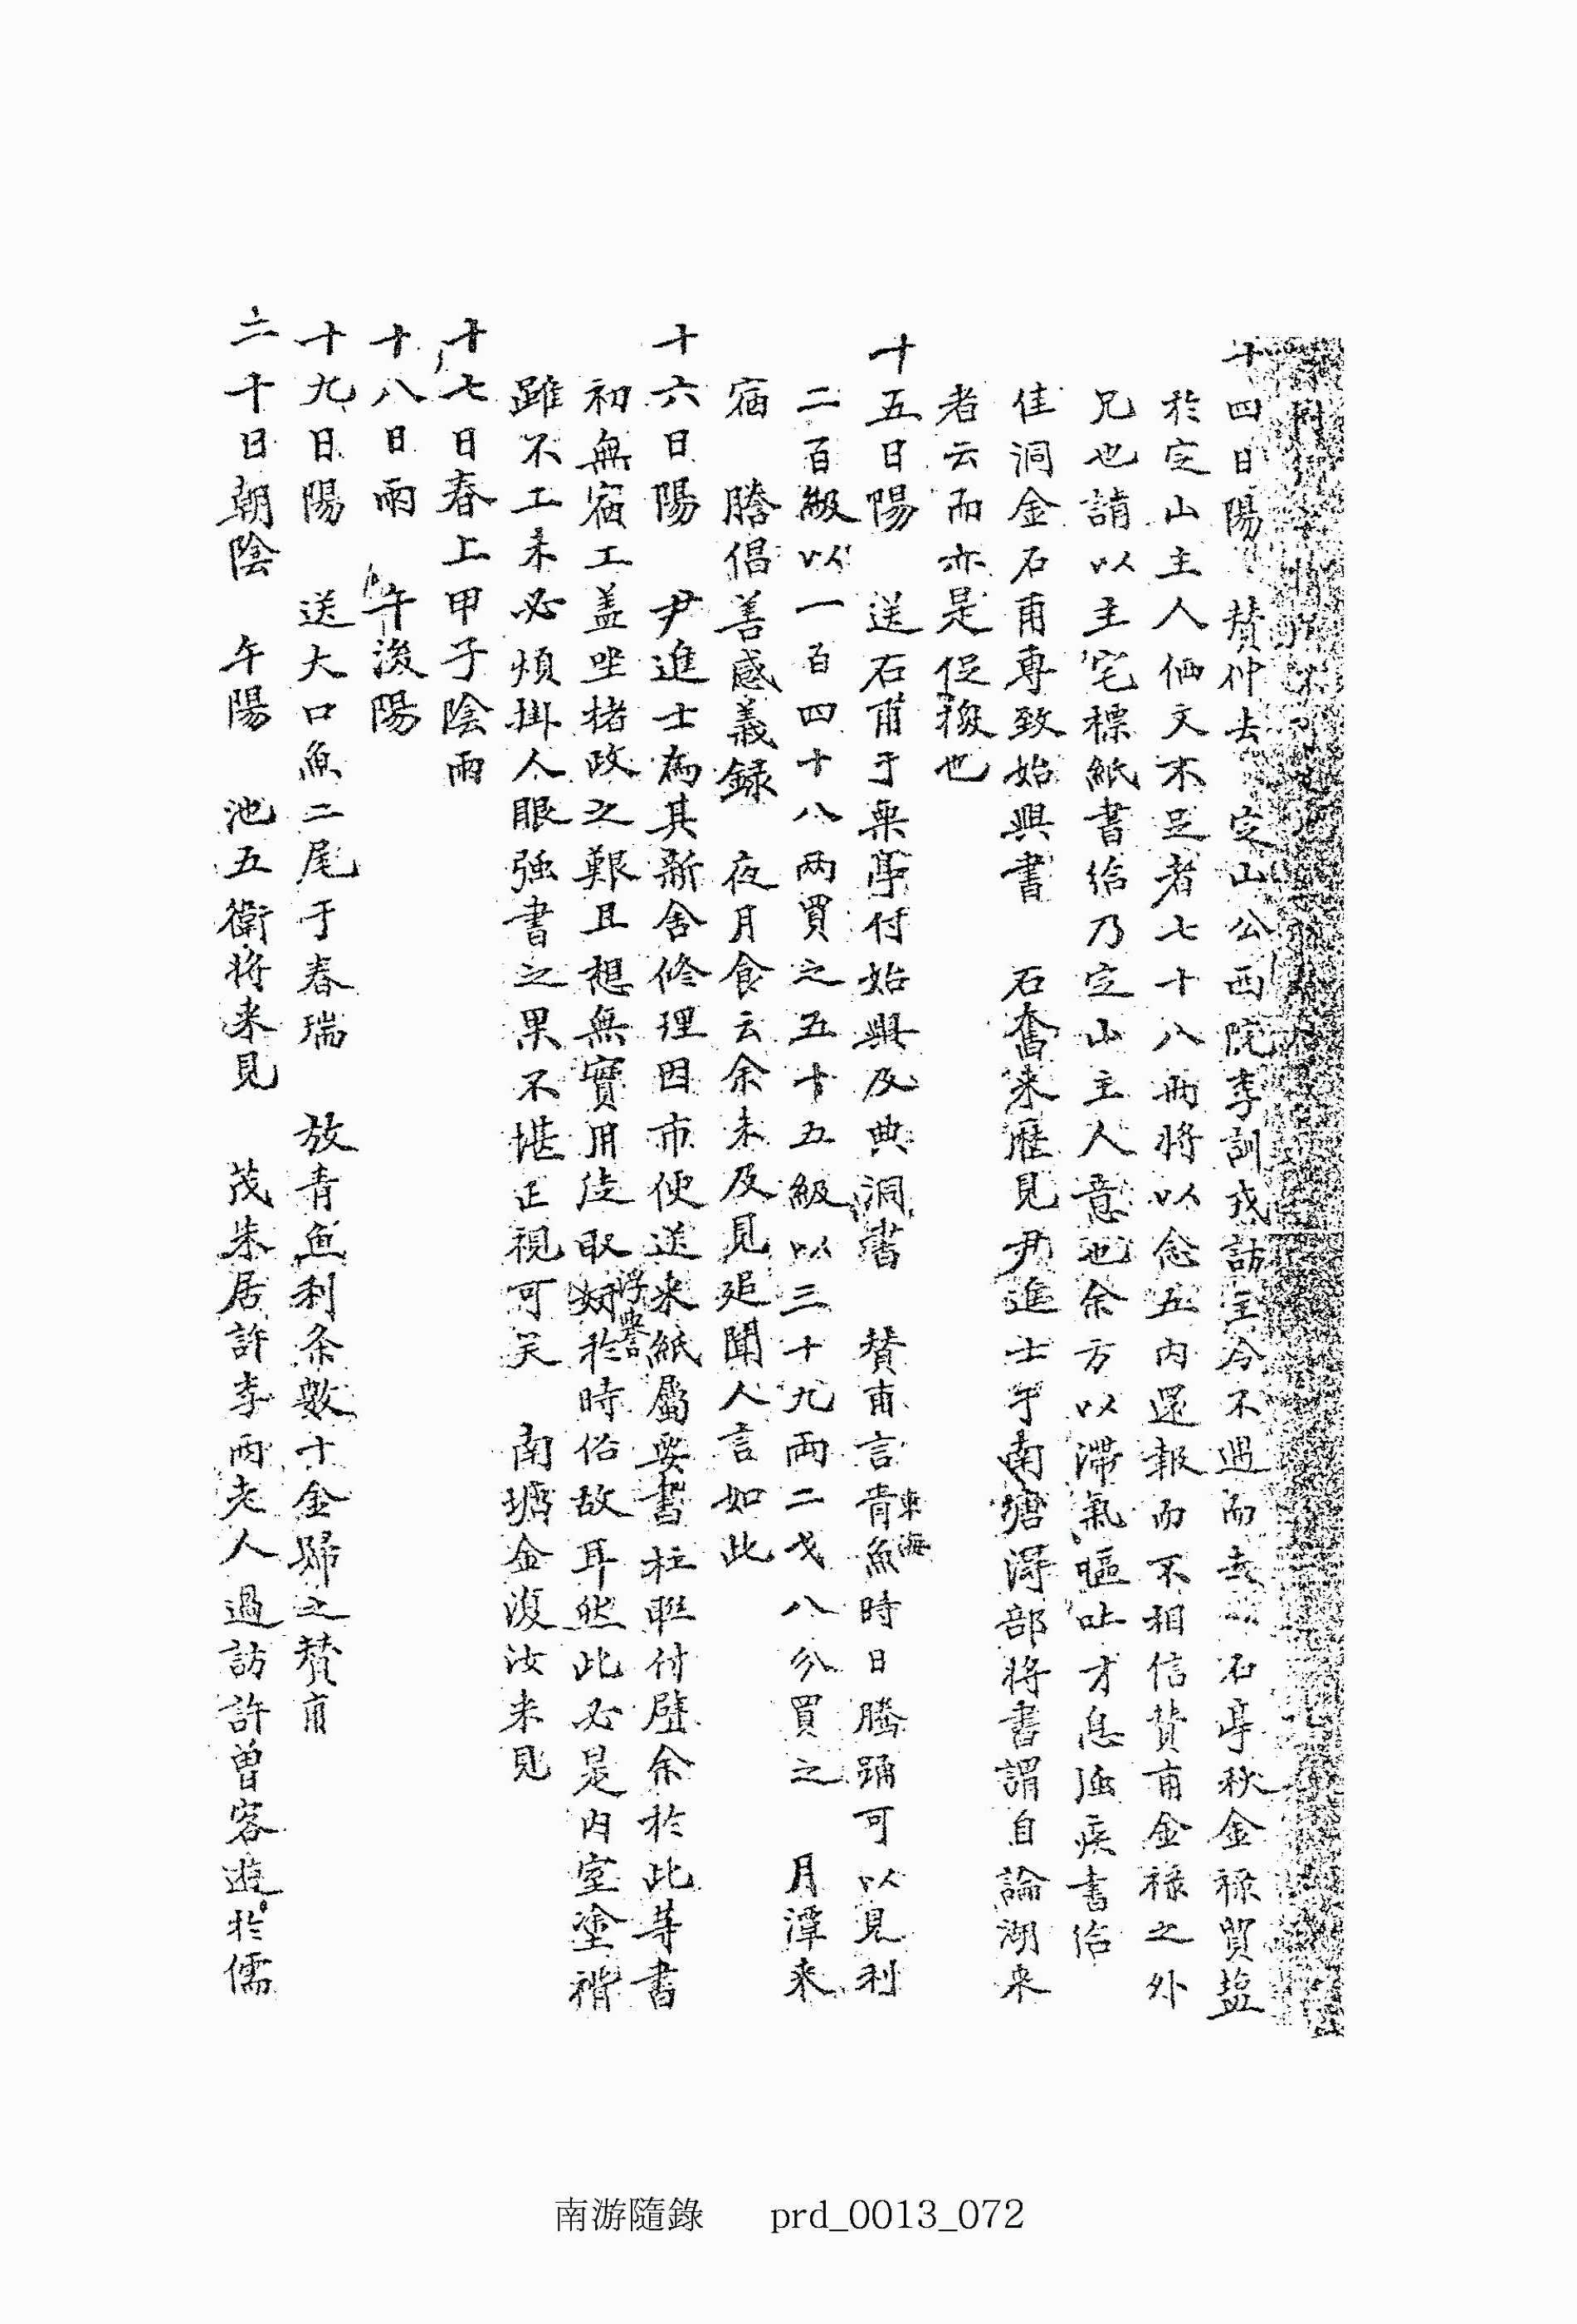 十四日陽 賛仲去 定山公西院李訓戎訪主今不遇而去 石亭秋金祿貿塩
於定山主人価文不足者七十八兩將以念五內還報而不相信賛甫金祿之外
兄也請以主宅標紙書給乃定山主人意也余方以滯氣嘔吐才息疾書給
佳洞金石甫專致始興書 石奮來歷見尹進士于南塘得部將書謂自論湖來
者云而亦是促機也
十五日陽 送石甫于栗亭付始興及典洞書 賛甫言青魚時日騰踊可以見利
東海
二百級以一百四十八兩買之五十五級以三十九兩二戈八分買之 月潭來
宿 謄倡善感義録 夜月食云余未及見追聞人言如此
十六日陽 尹進士為其新舍修理因市便送來紙屬要書柱聯付壁余於此等書
初無宿工盖坐楮政之艱且想無實用徒取姍於時俗故耳然此必是內室塗褙
雖不工未必煩掛人眼強書之果不堪正視可笑 南塘金復汝來見
十七日春上甲子陰雨
十八日雨 午後陽
十九日陽 送大口魚二尾于春瑞 放青魚利条數十金歸之賛甫
二十日朝陰 午陽 池五衛將來見 茂朱居許李兩老人過訪許曾客遊於儒
南游隨錄 prd_0013_072